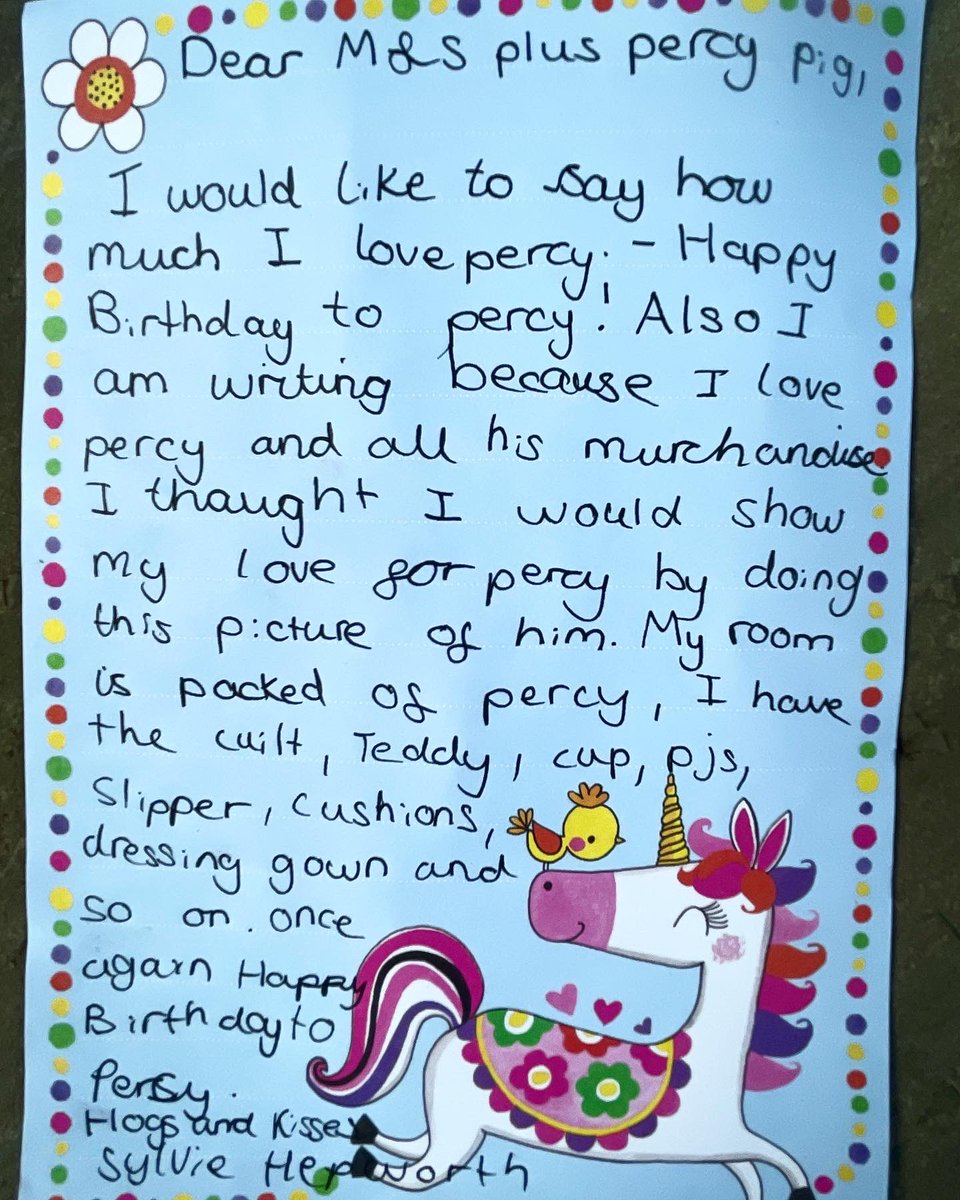 Dear M&S plus percy pig,
I would like to say how
much I love percy. - Happy
Birthday to percy! Also I
am writing because I love
percy and all his murchandise
I thaught I would show
my love for percy by doing
this picture of him. My room
is packed of percy, I have
the cuilt, Teddy, cup, pjs,
Slipper, cushions,
dressing gown and
so on. once
again Happy
Birthday to
Persy.
Hogs and Kisses
Sylvie Hepworth